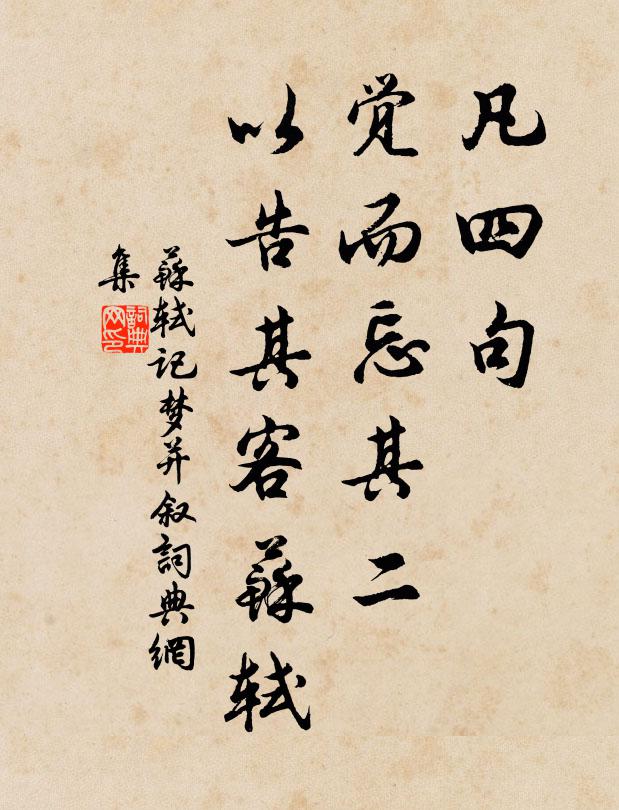 凡四句
觉而忘其二
以告其客蘇轼
蘇轼记梦并叙詞典網
集
詞典网印